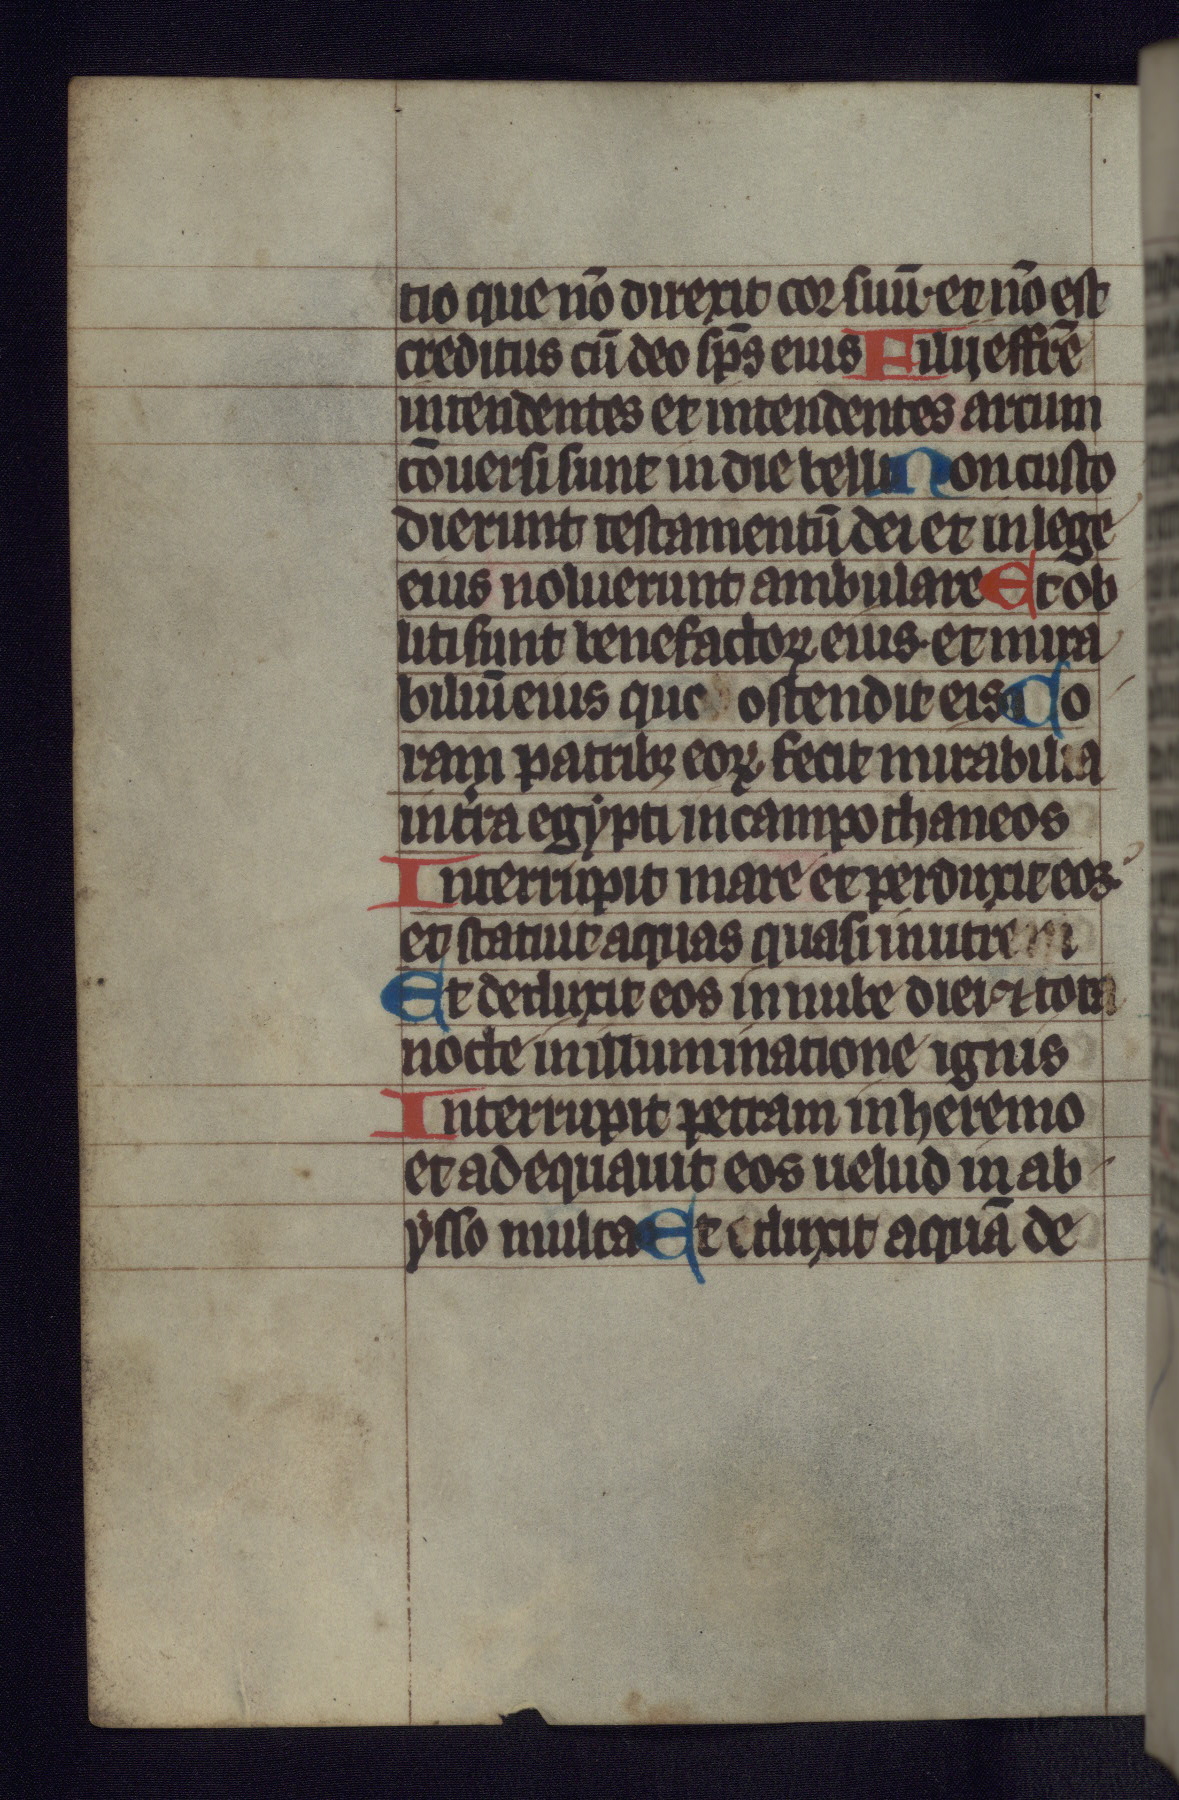 tio que nō direxit cor suū· et nō est
creditus cū deo sp̄s eius Filij effrē
intendentes et intendentes arcum
cōuersi sunt in die belli Non custo
dierunt testamentū dei et in lege
eius noluerunt ambulare Et ob
liti sunt benefactoꝝ eius· et mira
biliū eius que ostendit eis Co
ram patribꝫ eoꝝ fecit mirabilia
in tr̄a egẏpti in campo thaneos
Interrupit mare et perduxit eos·
et statuit aquas quasi in utrem
Et deduxit eos in nube diei ⁊ tota
nocte in illuminatione ignis
Interrupit petram in heremo
et adequauit eos uelud in ab
ẏsso multa Et eduxit aquā de